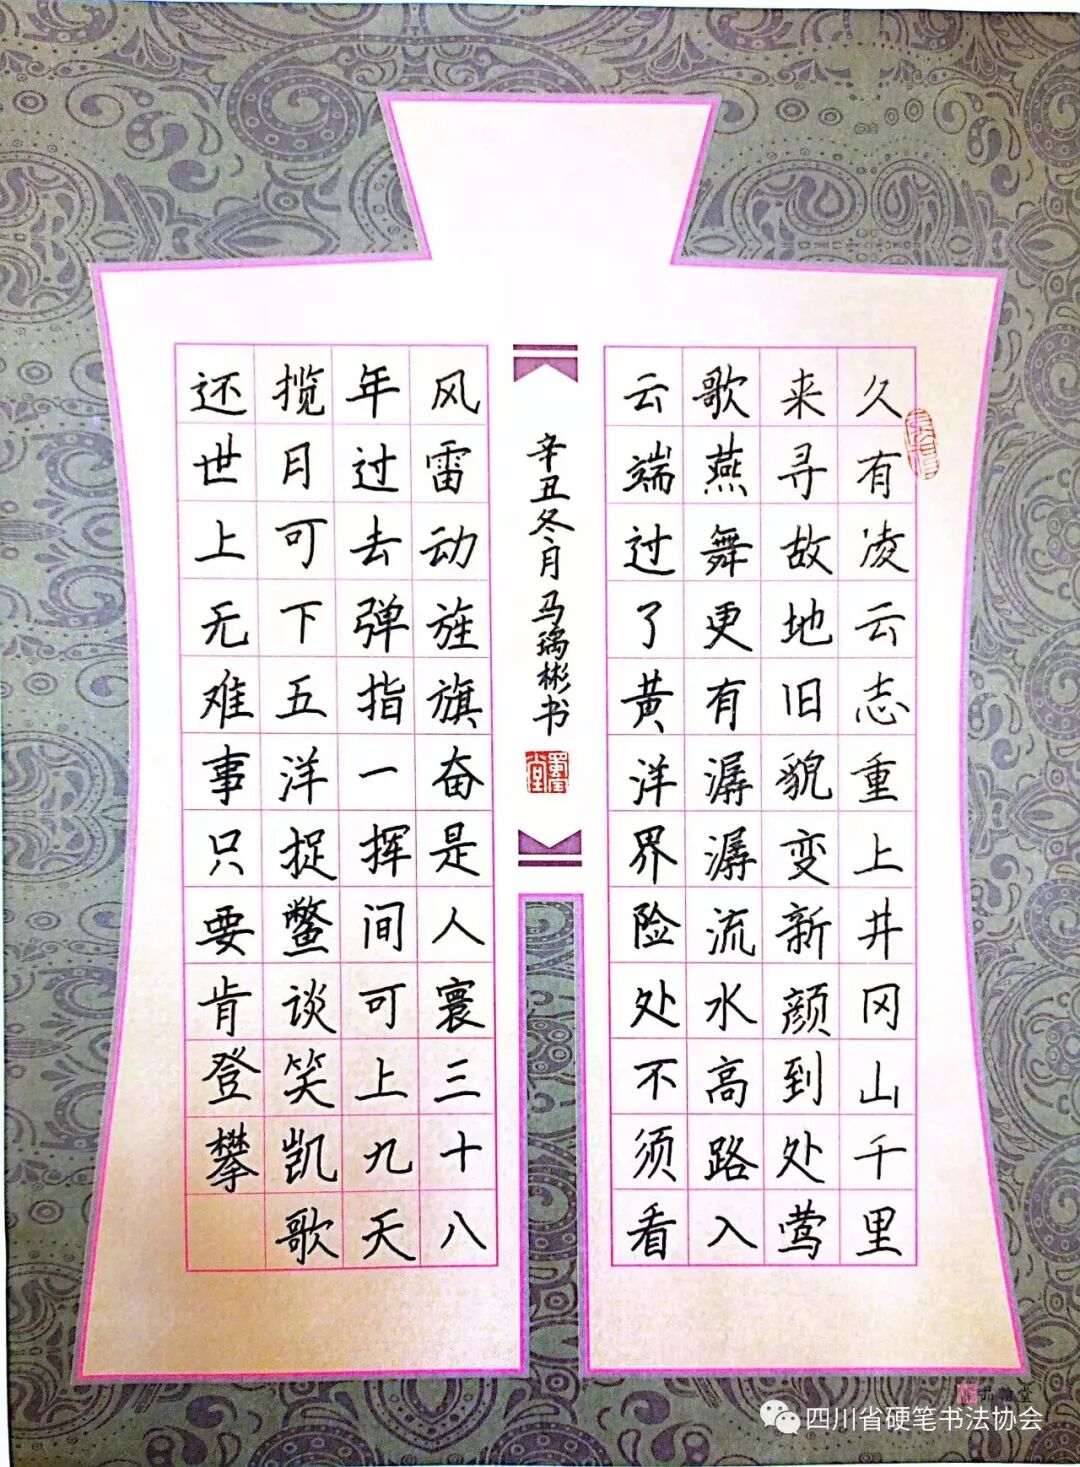 久有凌云志重上井冈山千里
来寻故地旧貌变新颜到处莺
歌燕舞更有潺潺流水高路入
云端过了黄洋界险处不须看
辛丑冬月马瑀彬书
风雷动旌旗奋是人寰三十八
年过去弹指一挥间可上九天
揽月可下五洋捉鳖谈笑凯歌
还世上无难事只要肯登攀
四川省硬笔书法协会